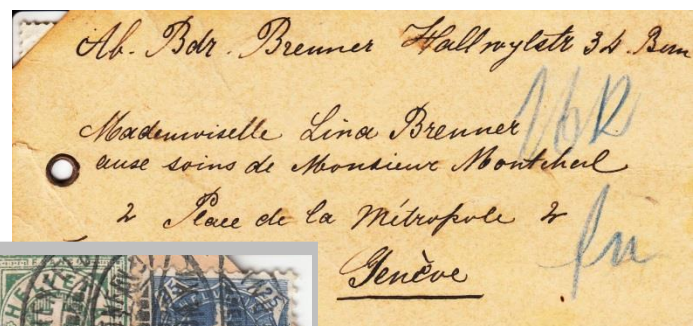 Ab. Bdr. Brenner Hallwylstr 34. Bern
Mademoiselle Lina Brenner
aux soins de Monsieur
2 Place de la Métropole 2
Genève
25